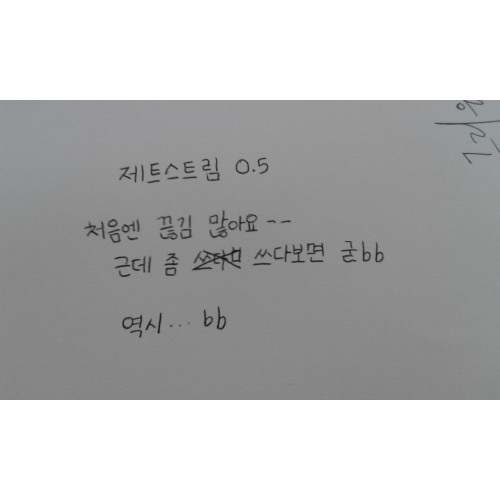 제트스트림 0.5
처음엔 끊김 많아요--
근데 좀 쓰다보면 굳bb
역시... bb